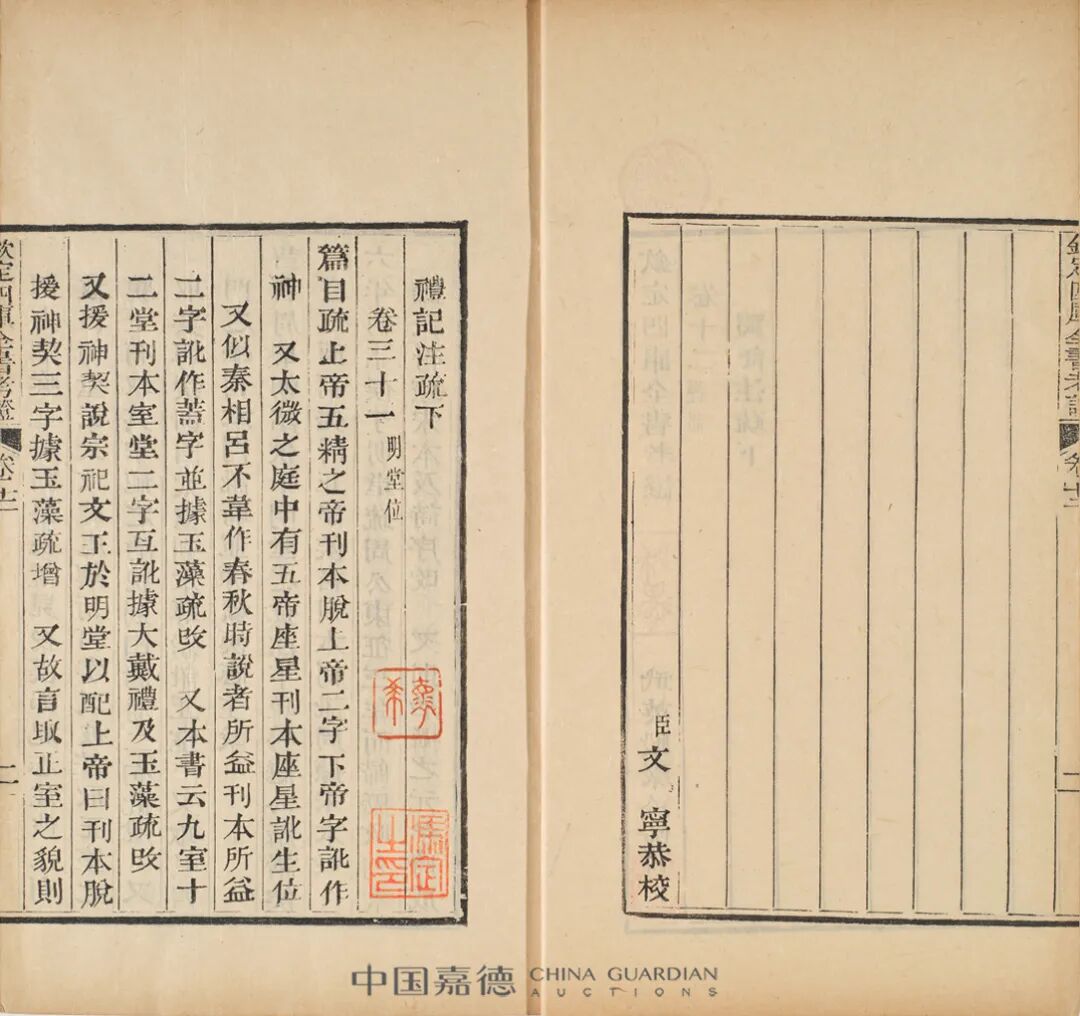 欽定四庫全書考證
卷十二
一
臣文寧恭校
禮記注疏下
卷三十一明堂位
篇目疏上帝五精之帝刊本脫上帝二字下帝字訛作
神　又太微之庭中有五帝座星刊本座星訛生位
又似秦相呂不韋作春秋時說者所益刊本所益
二字訛作蓋字並據玉藻疏改　又本書云九室十
二堂刊本室堂二字互訛據大戴禮及玉藻疏改
又援神契說宗祀文王於明堂以配上帝曰刊本脫
援神契三字據玉藻疏增　又故言取正室之貌則
欽定四庫全書考證
中国嘉德 CHINA GUARDIAN
AUCTIONS